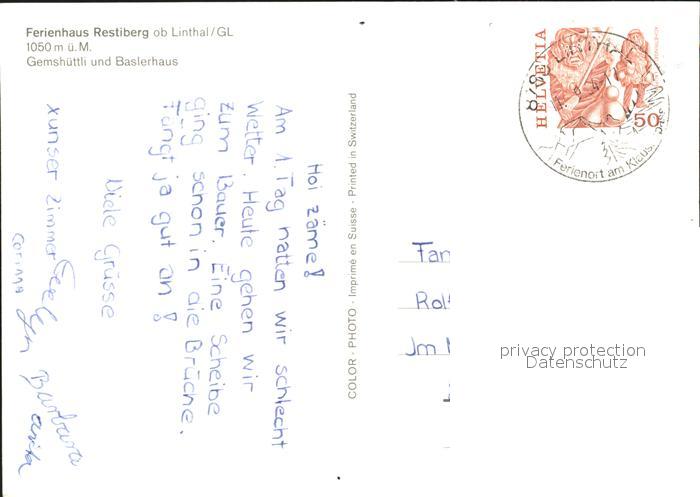 Ferienhaus Restiberg ob Linthal/GL
1050 m ü. M.
Gemshüttli und Baslerhaus
Hoi zäme!
Am 1. Tag hatten wir schlecht
Wetter. Heute gehen wir
zum Bauer. Eine Scheibe
ging schon in die Brüche.
Fängt ja gut an!
Viele Grüsse
x unser Zimmer
Corinna
Barbara
COLOR - PHOTO - Imprimé en Suisse - Printed in Switzerland
HELVETIA
50
8783 LINTHAL
Ferienort am Klausen
Fam
Rol
Jm
privacy protection
Datenschutz